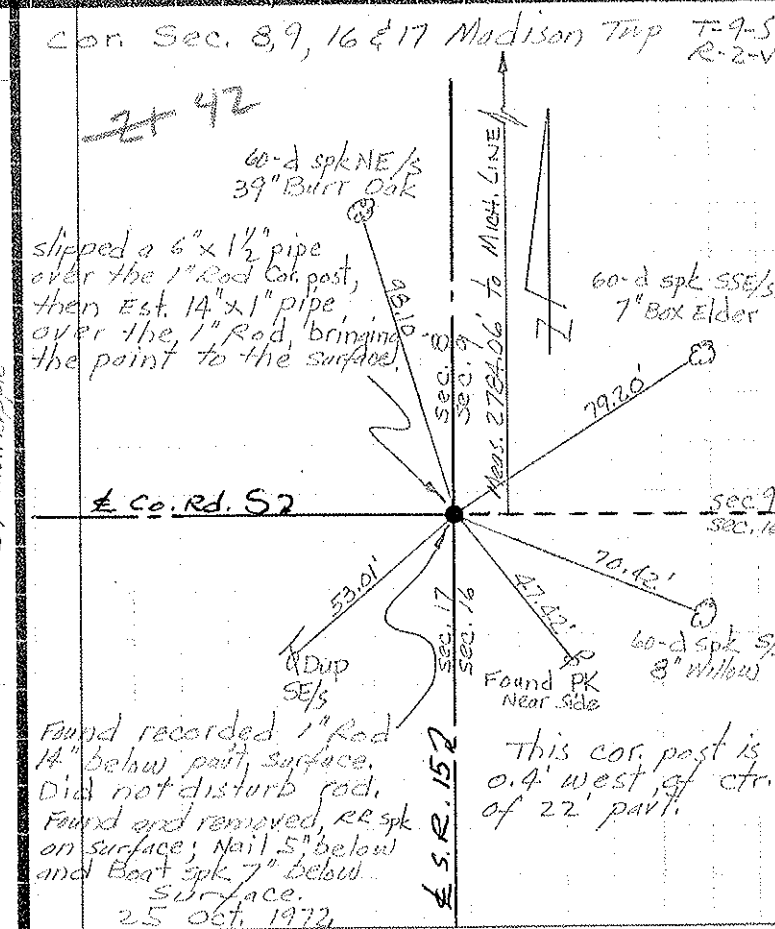 Cor. Sec. 8, 9, 16 & 17 Madison Twp T-9-S
R-2-W
21 42
60-d spk NE/s
39" Burr Oak
slipped a 6" x 1½" pipe
over the 1" Rod Cor. post,
then Est. 14" x 1" pipe
over the 1" Rod, bringing
the point to the surface.
98.10
Sec. 8
Sec. 9
Meas. 2784.06' to MICH. LINE
60-d spk SSE/s
7" Box Elder
79.20'
℄ Co. Rd. S2
Sec. 9
Sec. 16
53.01'
Sec. 17
Sec. 16
47.42'
70.42'
Dup
SE/s
Found PK
Near Side
60-d spk S/
8" Willow
Found recorded 1" Rod
14" below pavt. surface.
Did not disturb rod.
Found and removed, RR spk
on surface; Nail 5" below
and Boat spk 7" below
Surface.
25 Oct. 1972
℄ S.R. 152
This cor. post is
0.4' west of ctr.
of 22' pavt.